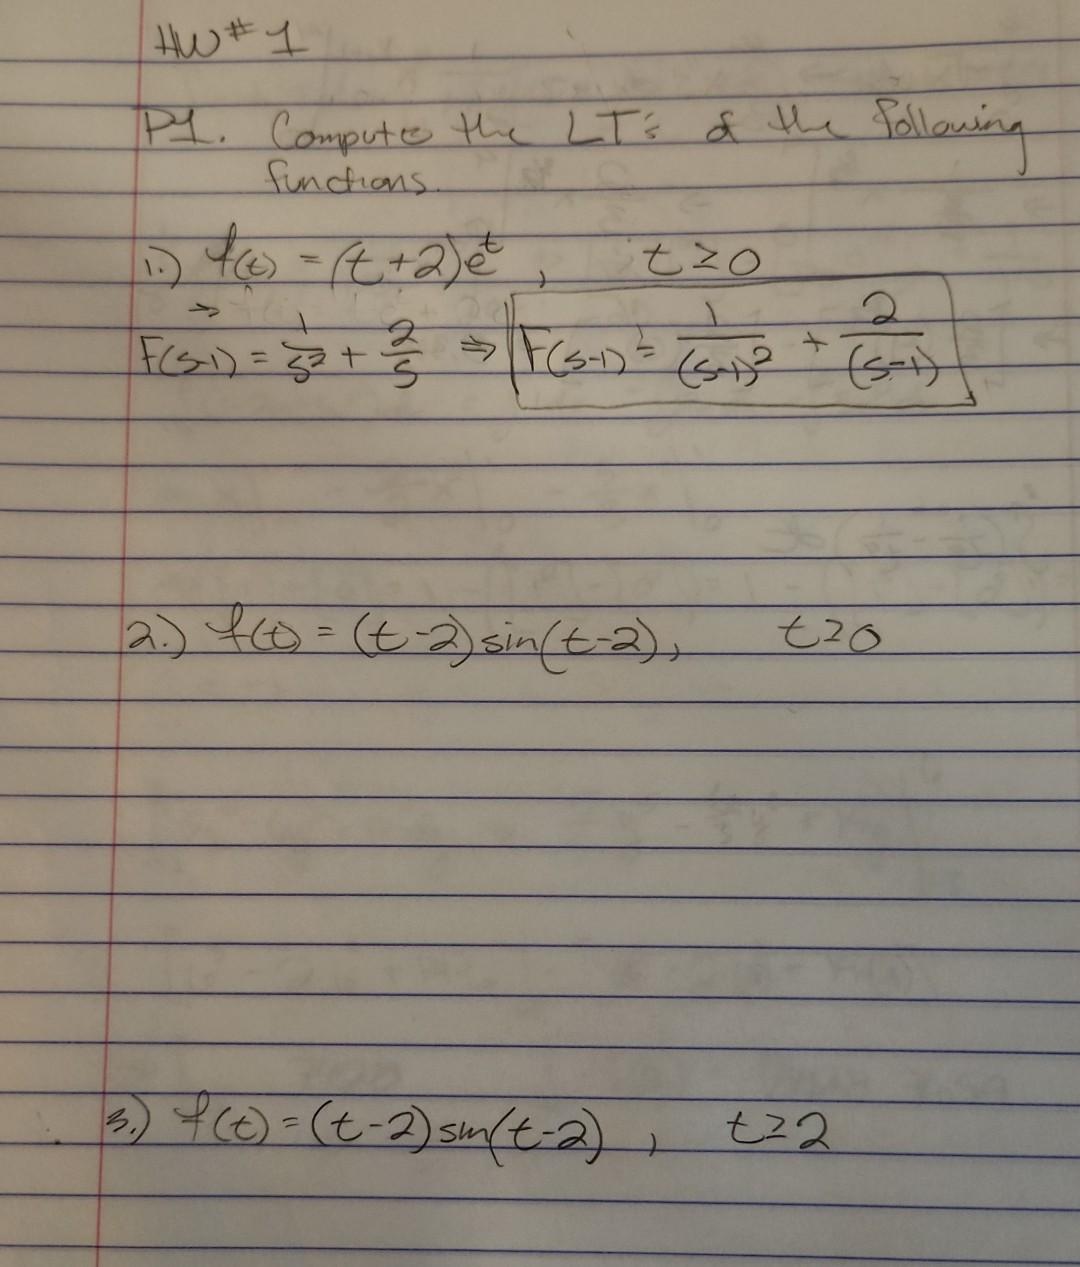 HW # 1
P1. Compute the LT's of the following
functions.
1.) f(t) = (t+2)e^t, t ≥ 0
⇒
F(s-1) = 1/s² + 2/s ⇒ F(s-1) = 1/(s-1)² + 2/(s-1)
2.) f(t) = (t-2)sin(t-2), t≥0
3.) f(t) = (t-2)sin(t-2), t≥2